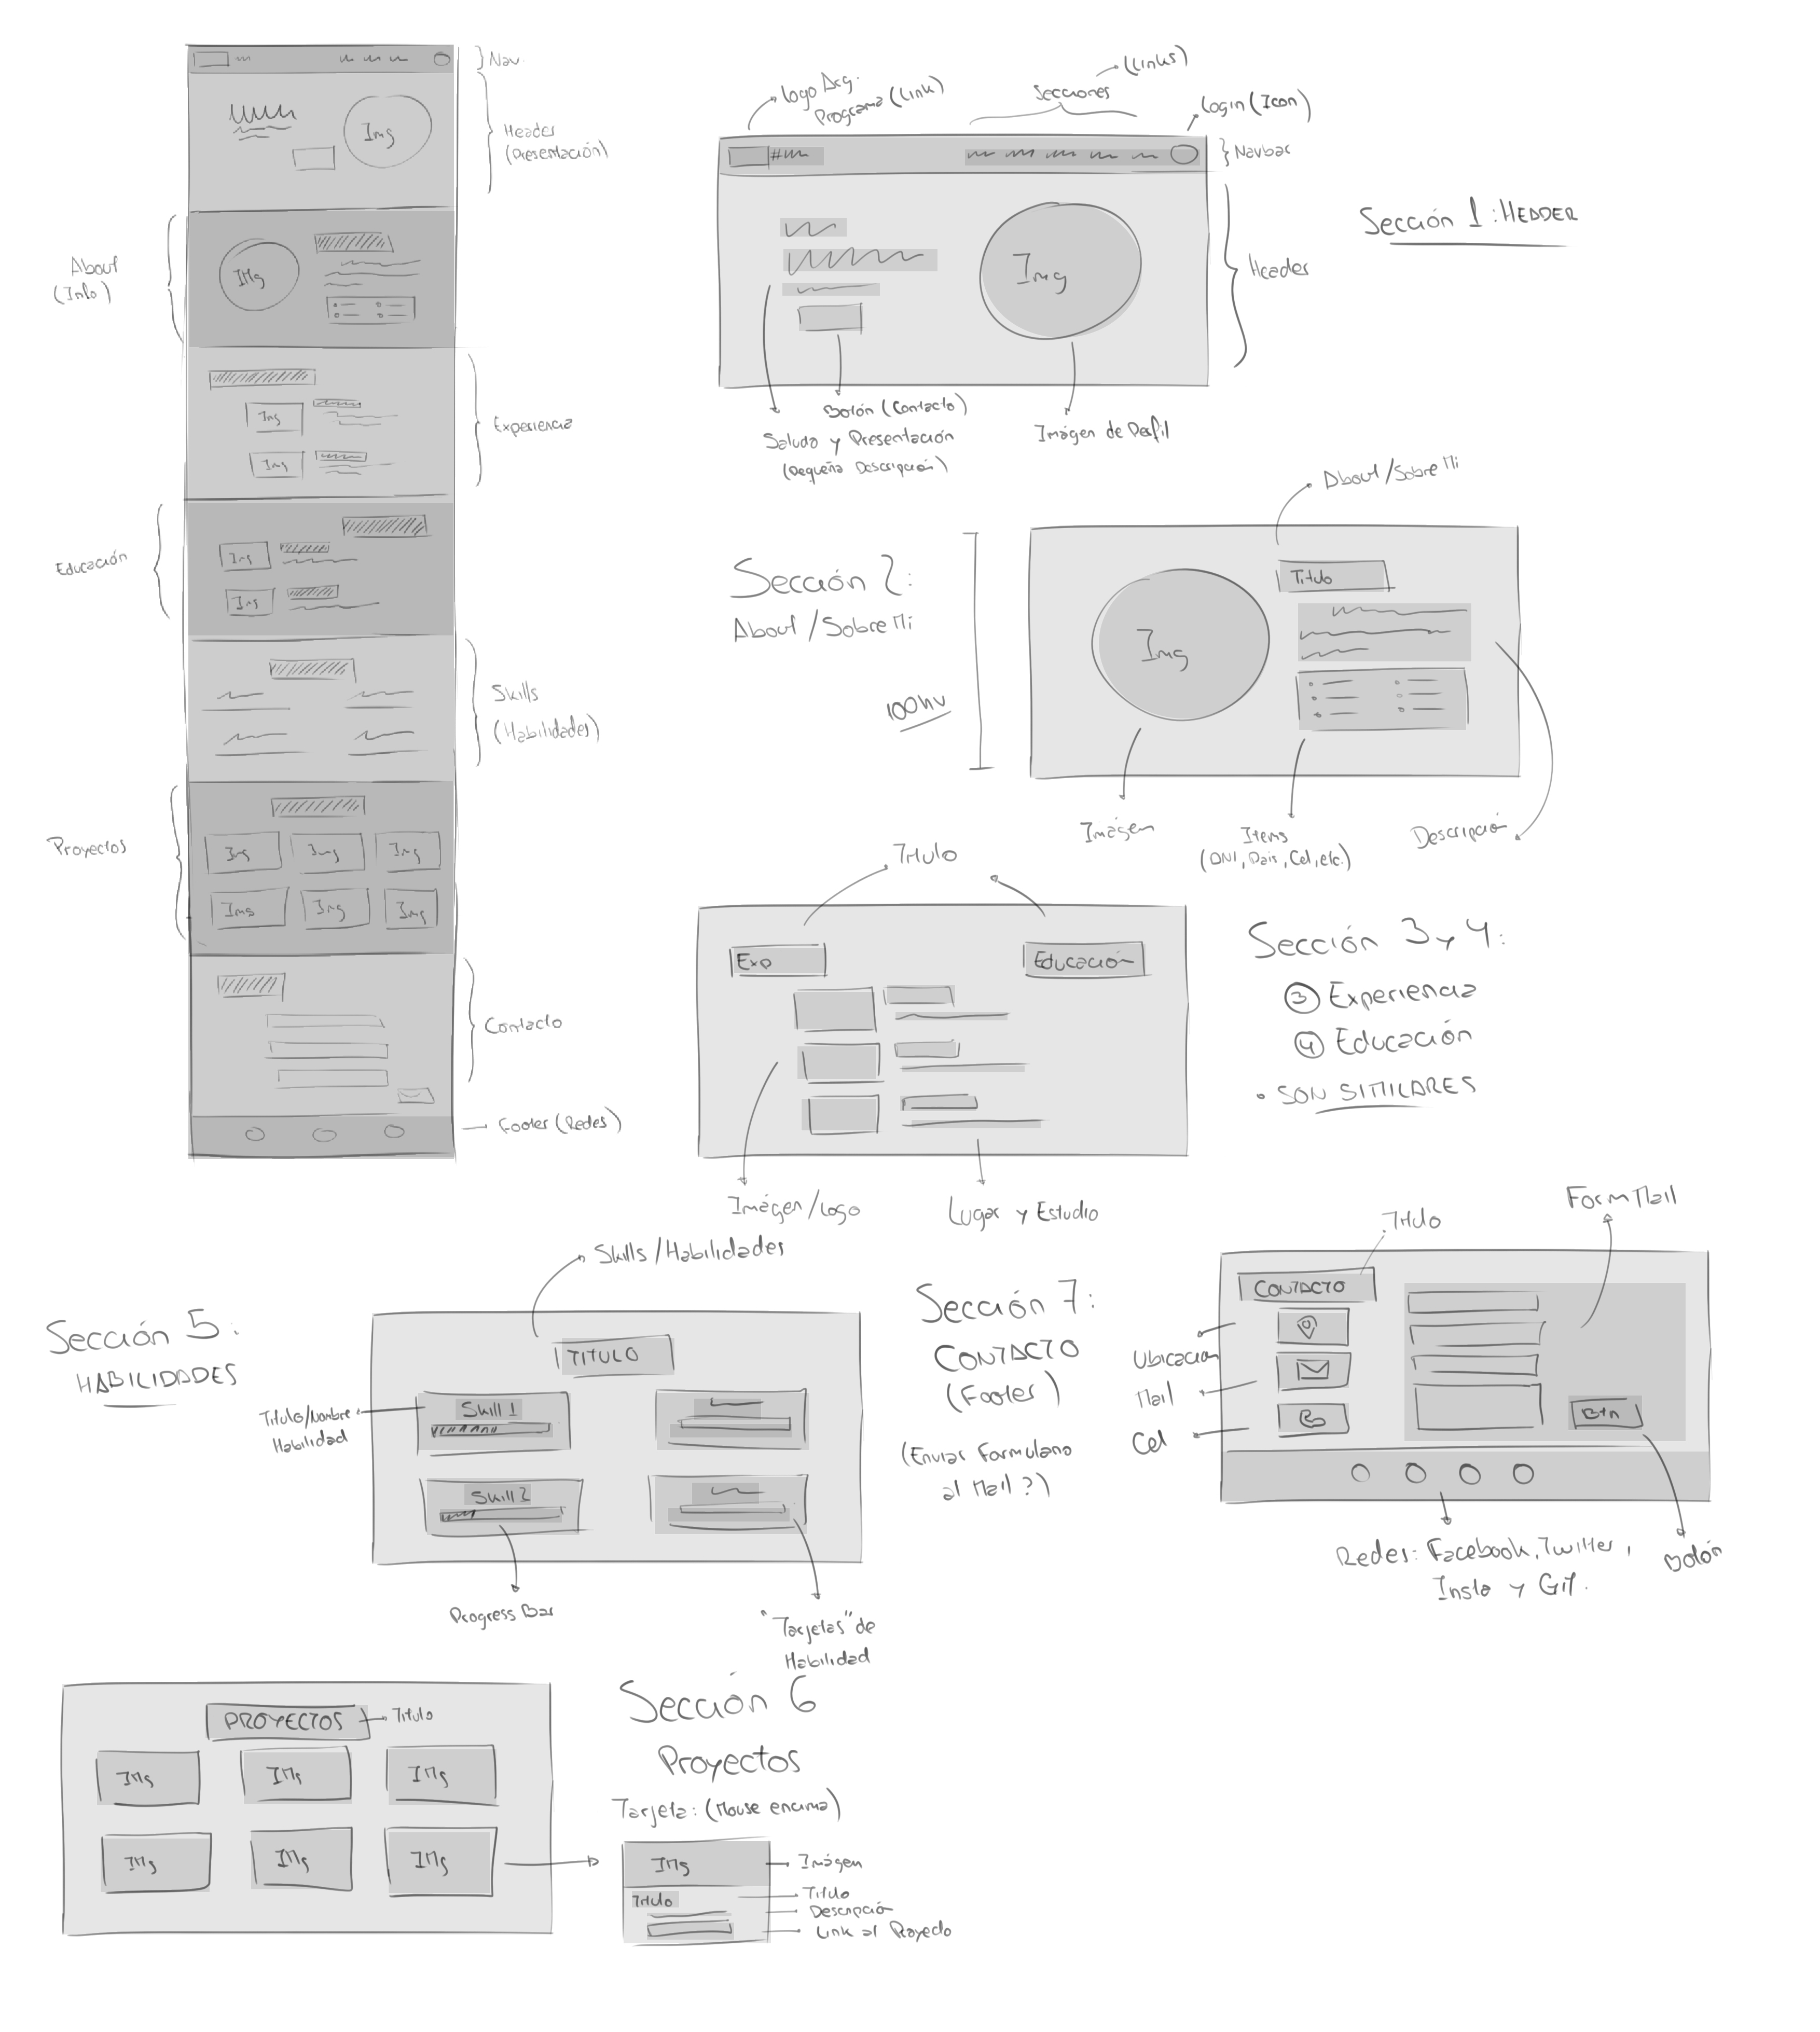 Nav.
Header
(Presentación)
Img
About
(Info)
IMg
Experiencia
Img
Img
Educación
Img
Img
Skills
(Habilidades)
Proyectos
Img
Img
Img
Img
Img
Img
Contacto
Footer (Redes)
Logo Arg.
Programa (Link)
Secciones
(Links)
Login (Icon)
#
Navbar
Header
Img
Botón (Contacto)
Saludo y Presentación
(Pequeña Descripción)
Imágen de Perfil
Sección 1: HEADER
Sección 2:
About / Sobre Mi
100hv
About / Sobre Mi
Titulo
Img
Imágen
Items
(DNI, Pais, Cel, etc.)
Descripción
Titulo
Exp
Educación
Imágen/Logo
Lugar y Estudio
Sección 3 y 4:
3 Experiencia
4 Educación
• SON SIMILARES
Sección 5:
HABILIDADES
Skills / Habilidades
TITULO
Titulo/Nombre
Habilidad
Skill 1
Skill 2
Progress Bar
"Tarjetas" de
Habilidad
Sección 7:
CONTACTO
(Footer)
(Enviar Formulario
al Mail?)
Titulo
Form Mail
CONTACTO
Ubicacion
Mail
Cel
Btn
Redes: Facebook, Twitter,
Insta y Git.
Botón
Sección 6
Proyectos
PROYECTOS
Titulo
IMg
IMg
IMg
IMg
IMg
IMg
Tarjeta: (Mouse encima)
IMg
Imágen
Titulo
Titulo
Descripción
Link al Proyecto